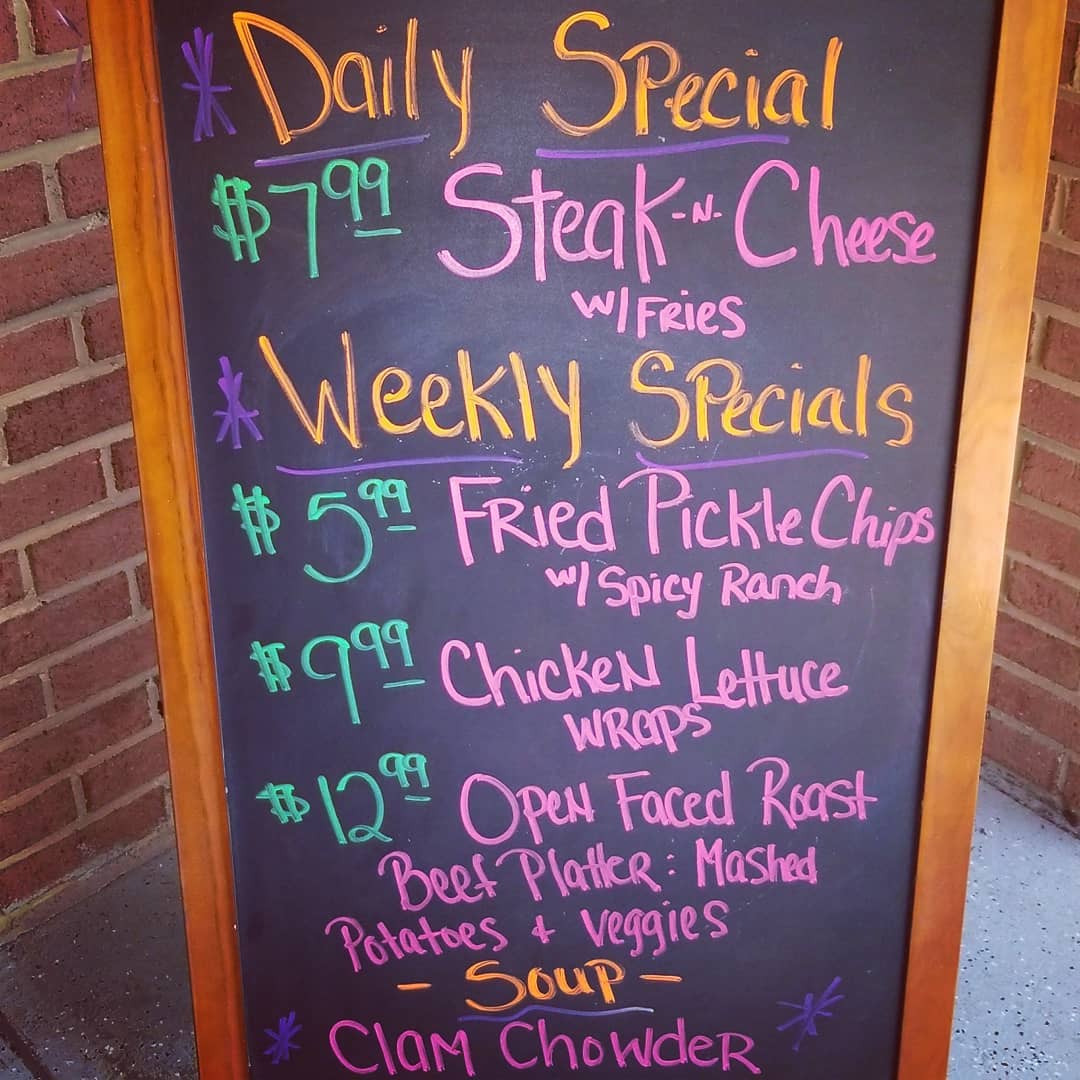 * Daily Special
$7.99 Steak-N-Cheese
w/ Fries
* Weekly Specials
$5.99 Fried Pickle Chips
w/ Spicy Ranch
$9.99 Chicken Lettuce
Wraps
$12.99 Open Faced Roast
Beef Platter: Mashed
Potatoes + Veggies
- Soup -
* Clam Chowder *